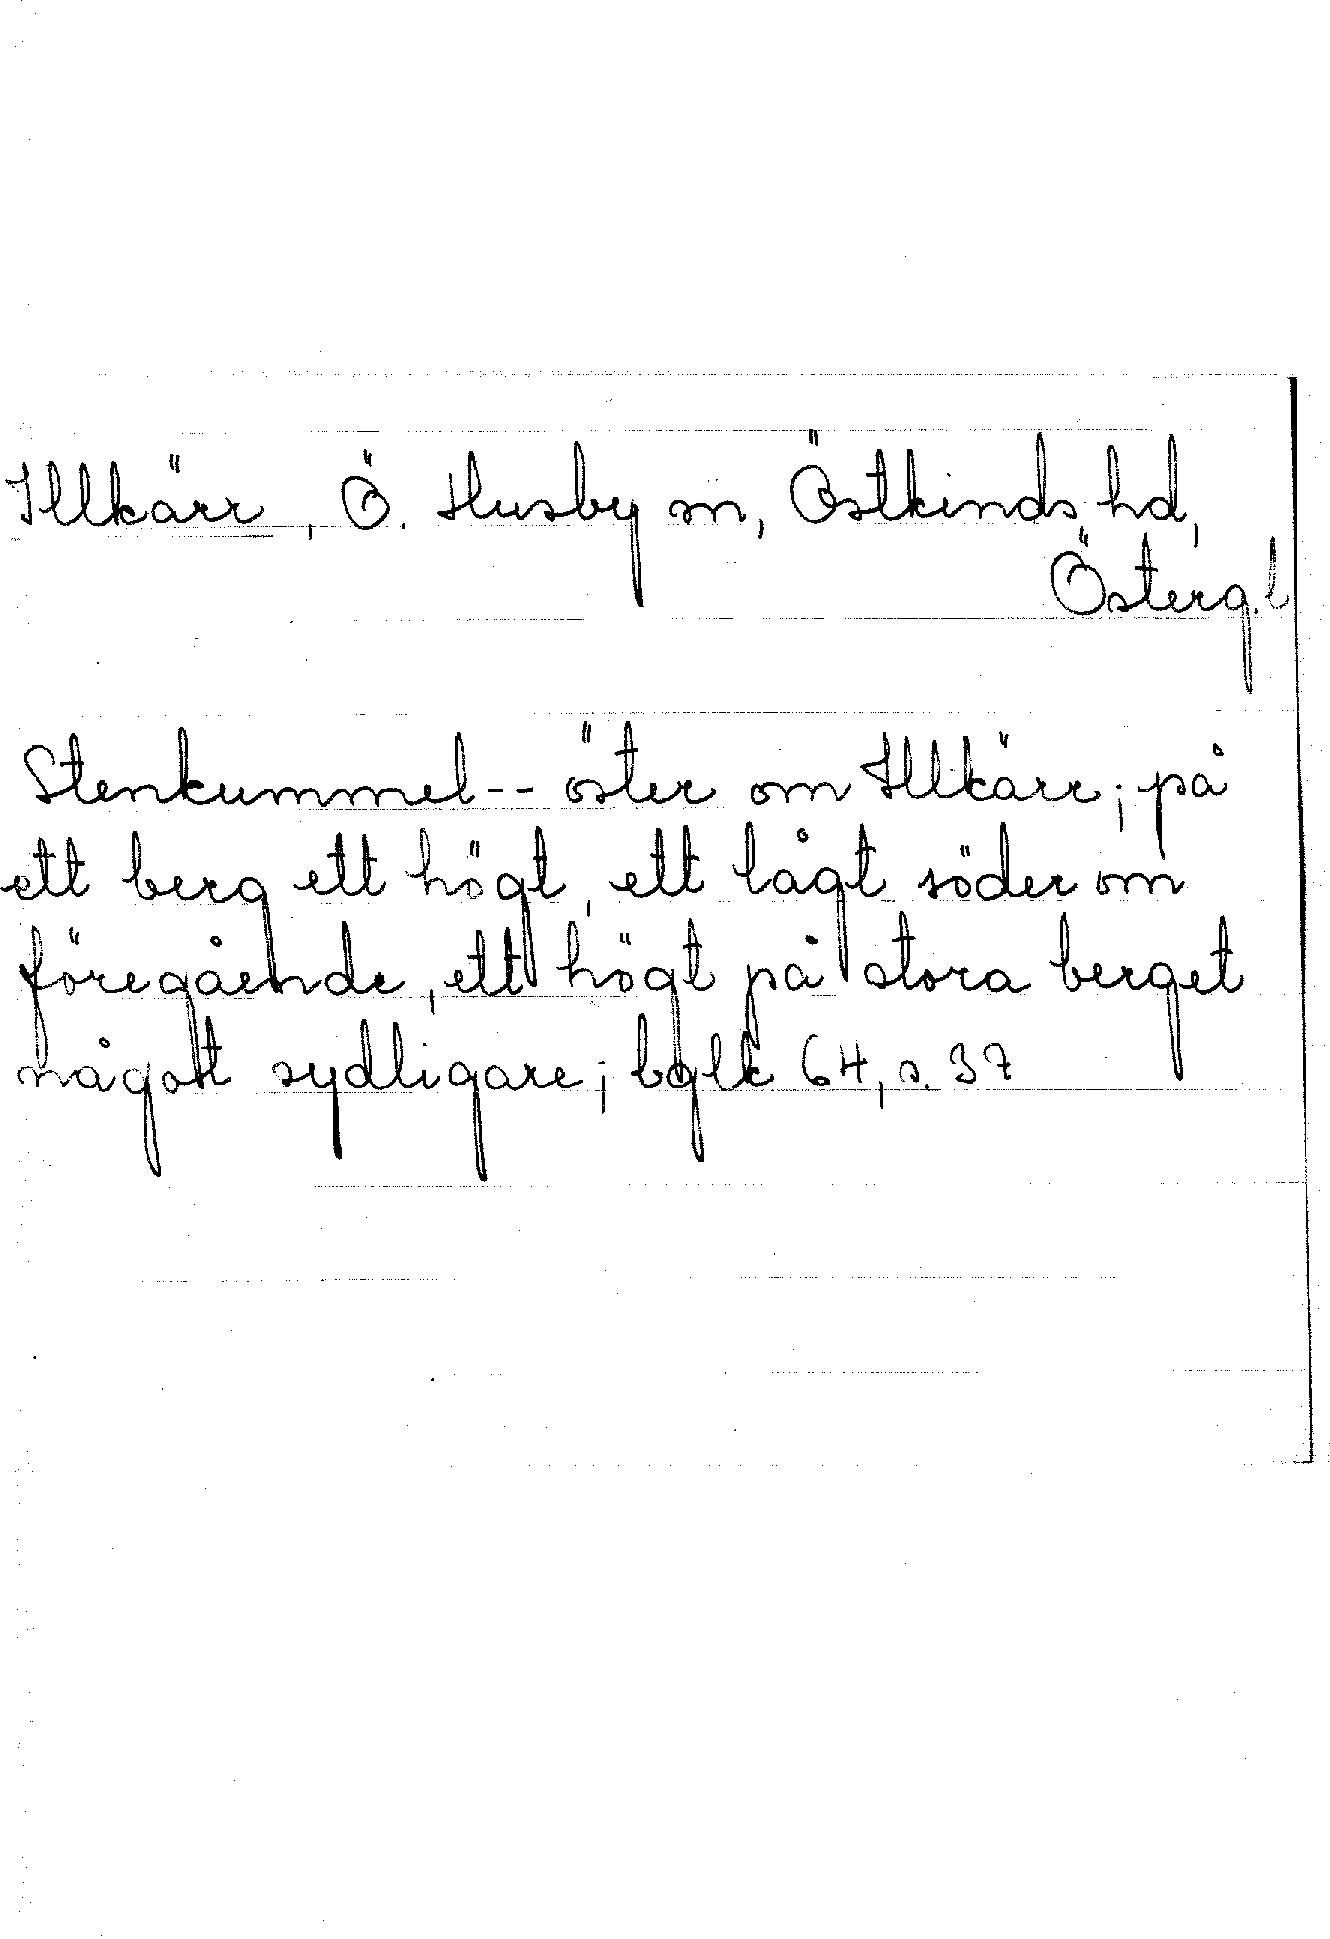 Illkärr, Ö. Husby sn, Östkinds hd,
Österg.l
Stenkummel -- öster om Illkärr; på
ett berg ett högt, ett lågt söder om
föregående, ett högt på stora berget
något sydligare; bglk 64, s. 37